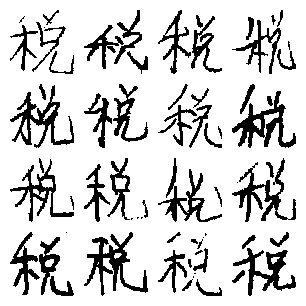 税税税税
税税税税
税税税税
税税税税